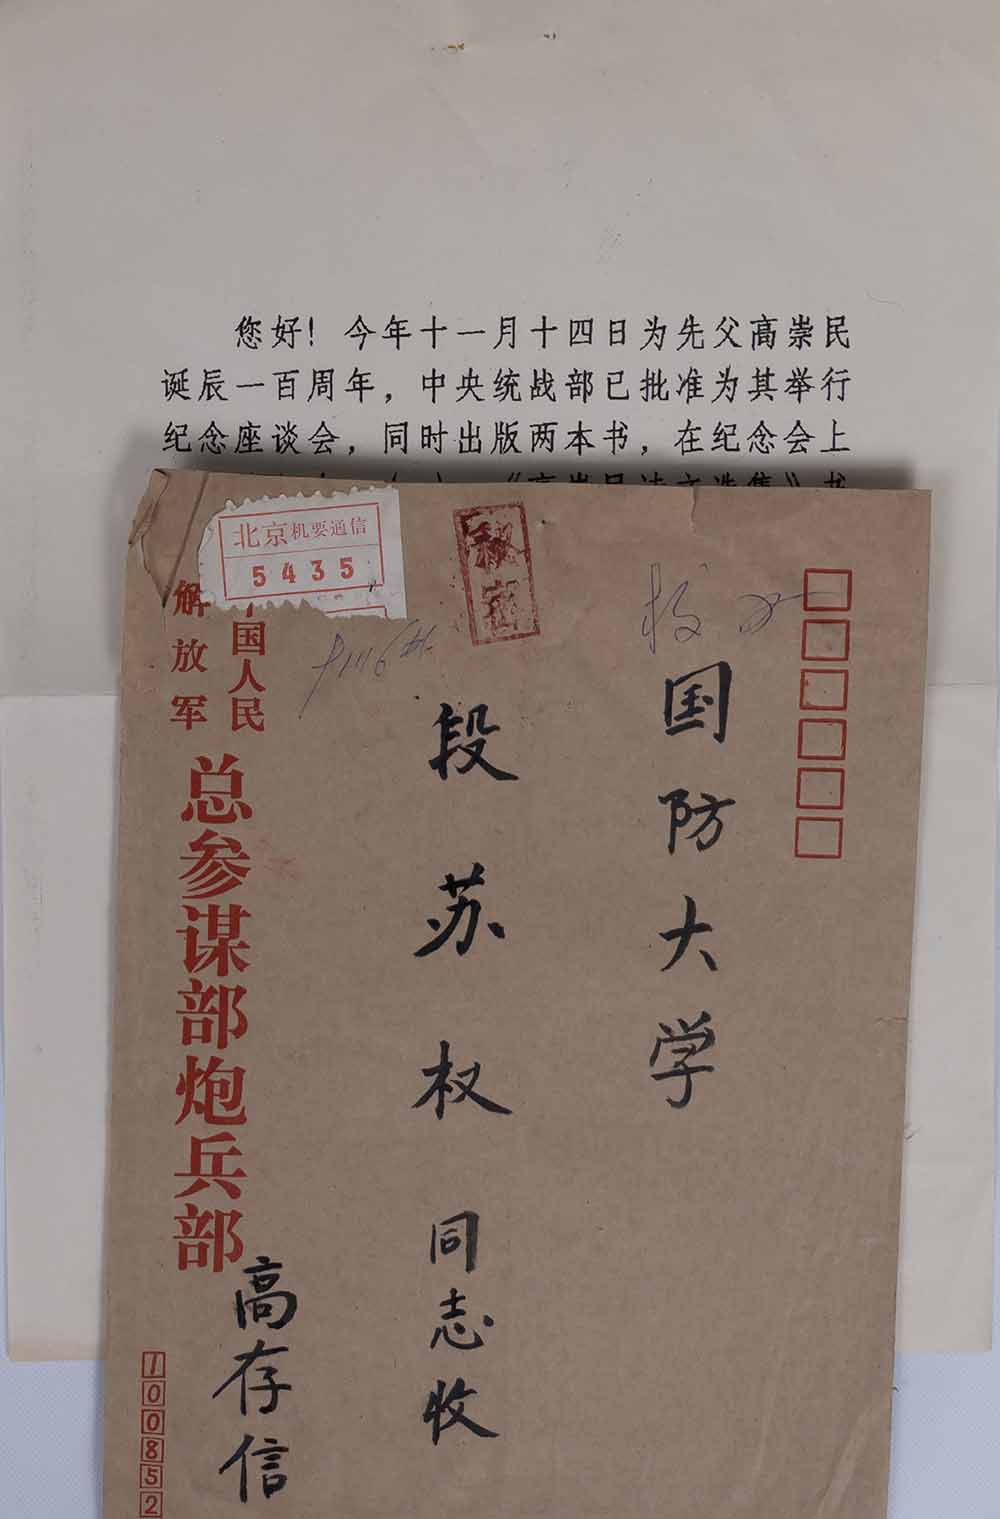 您好！今年十一月十四日为先父高崇民
诞辰一百周年，中央统战部已批准为其举行
纪念座谈会，同时出版两本书，在纪念会上
《高崇民诗文选集》书
北京机要通信
5435
秘密
国防大学
段苏权同志收
中国人民
解放军
总参谋部炮兵部
高存信
100852